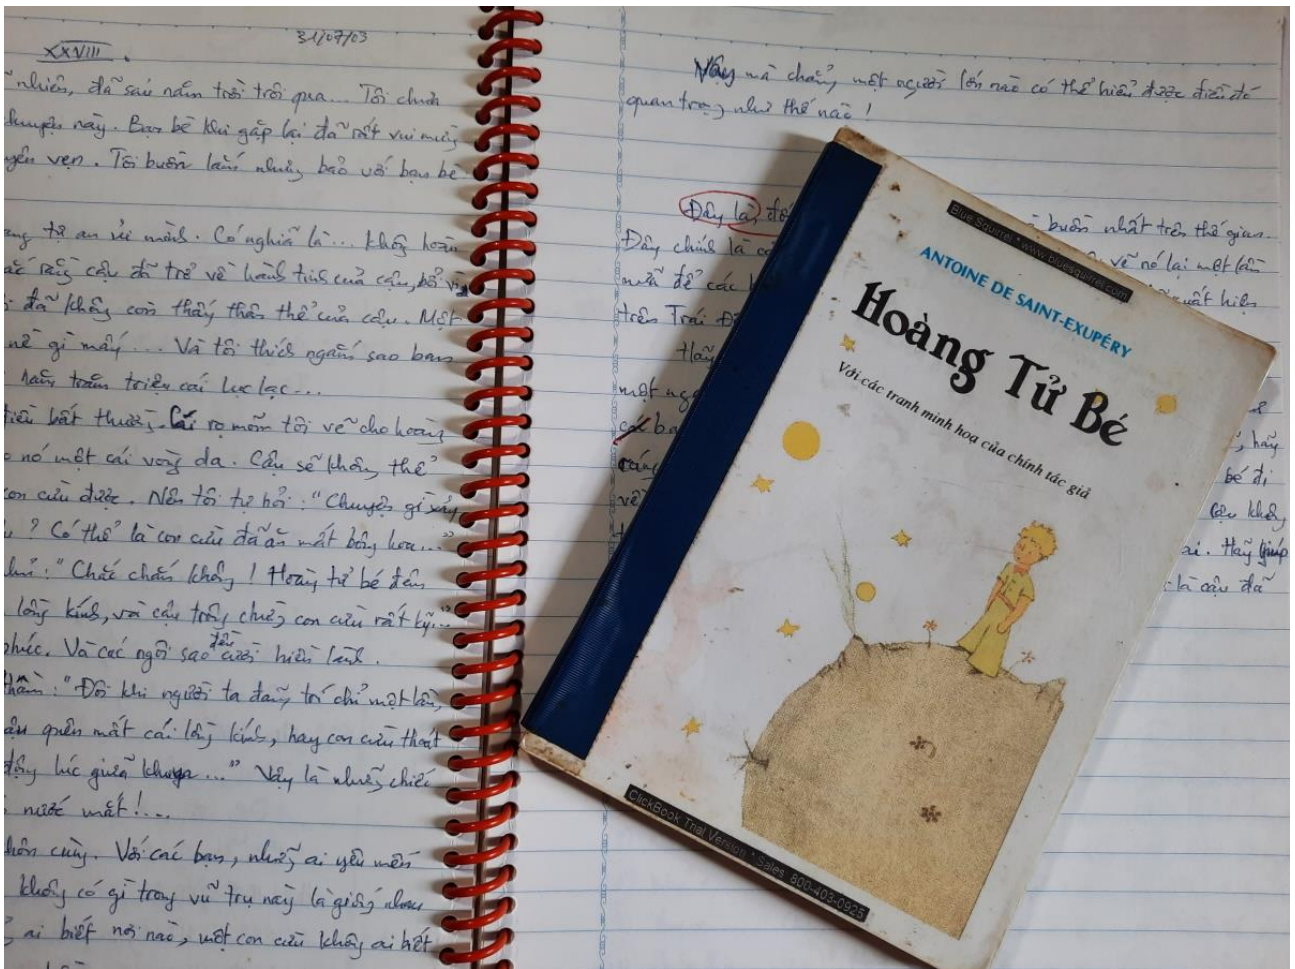 XXVIII.
31/07/03
nhiên, đã sáu năm trời trôi qua... Tôi chưa
chuyện này. Bạn bè khi gặp lại đã rất vui mừng
nguyên vẹn. Tôi buồn lắm nhưng bảo với bạn bè
tự an ủi mình. Có nghĩa là... không hoàn
rằng cậu đã trở về hành tinh của cậu, bởi vì
đã không còn thấy thân thể của cậu. Một
nề gì mấy... Và tôi thích ngắm sao ban
năm trăm triệu cái lục lạc...
điều bất thường. Cái rọ mõm tôi vẽ cho hoàng
nó một cái vòng da. Cậu sẽ không thể
con cừu được. Nên tôi tự hỏi: "Chuyện gì xảy
? Có thể là con cừu đã ăn mất bông hoa..."
nhủ: "Chắc chắn không! Hoàng tử bé đêm
lồng kính, và cậu trông chừng con cừu rất kỹ..."
phúc. Và các ngôi sao đều cười hiền lành.
thầm: "Đôi khi người ta đãng trí chỉ một lần,
quên mất cái lồng kính, hay con cừu thoát
động lúc giữa khuya..." Vậy là những chiếc
nước mắt!...
cùng. Với các bạn, những ai yêu mến
không có gì trong vũ trụ này là giống nhau
ai biết nơi nào, một con cừu không ai biết
Vậy mà chẳng một người lớn nào có thể hiểu được điều đó
quan trọng như thế nào!
Đây là, đối
buồn nhất trên thế gian.
Đây chính là
vẽ nó lại một lần
nữa để các
xuất hiện
trên Trái Đ
Hãy
một ng
các bạ
hãy
bé đi
về
cậu không
ai. Hãy giúp
là cậu đã
Blue Squirrel * www.bluesquirrel.com
ANTOINE DE SAINT-EXUPÉRY
Hoàng Tử Bé
Với các tranh minh hoạ của chính tác giả
ClickBook Trial Version * Sales 800-403-0925